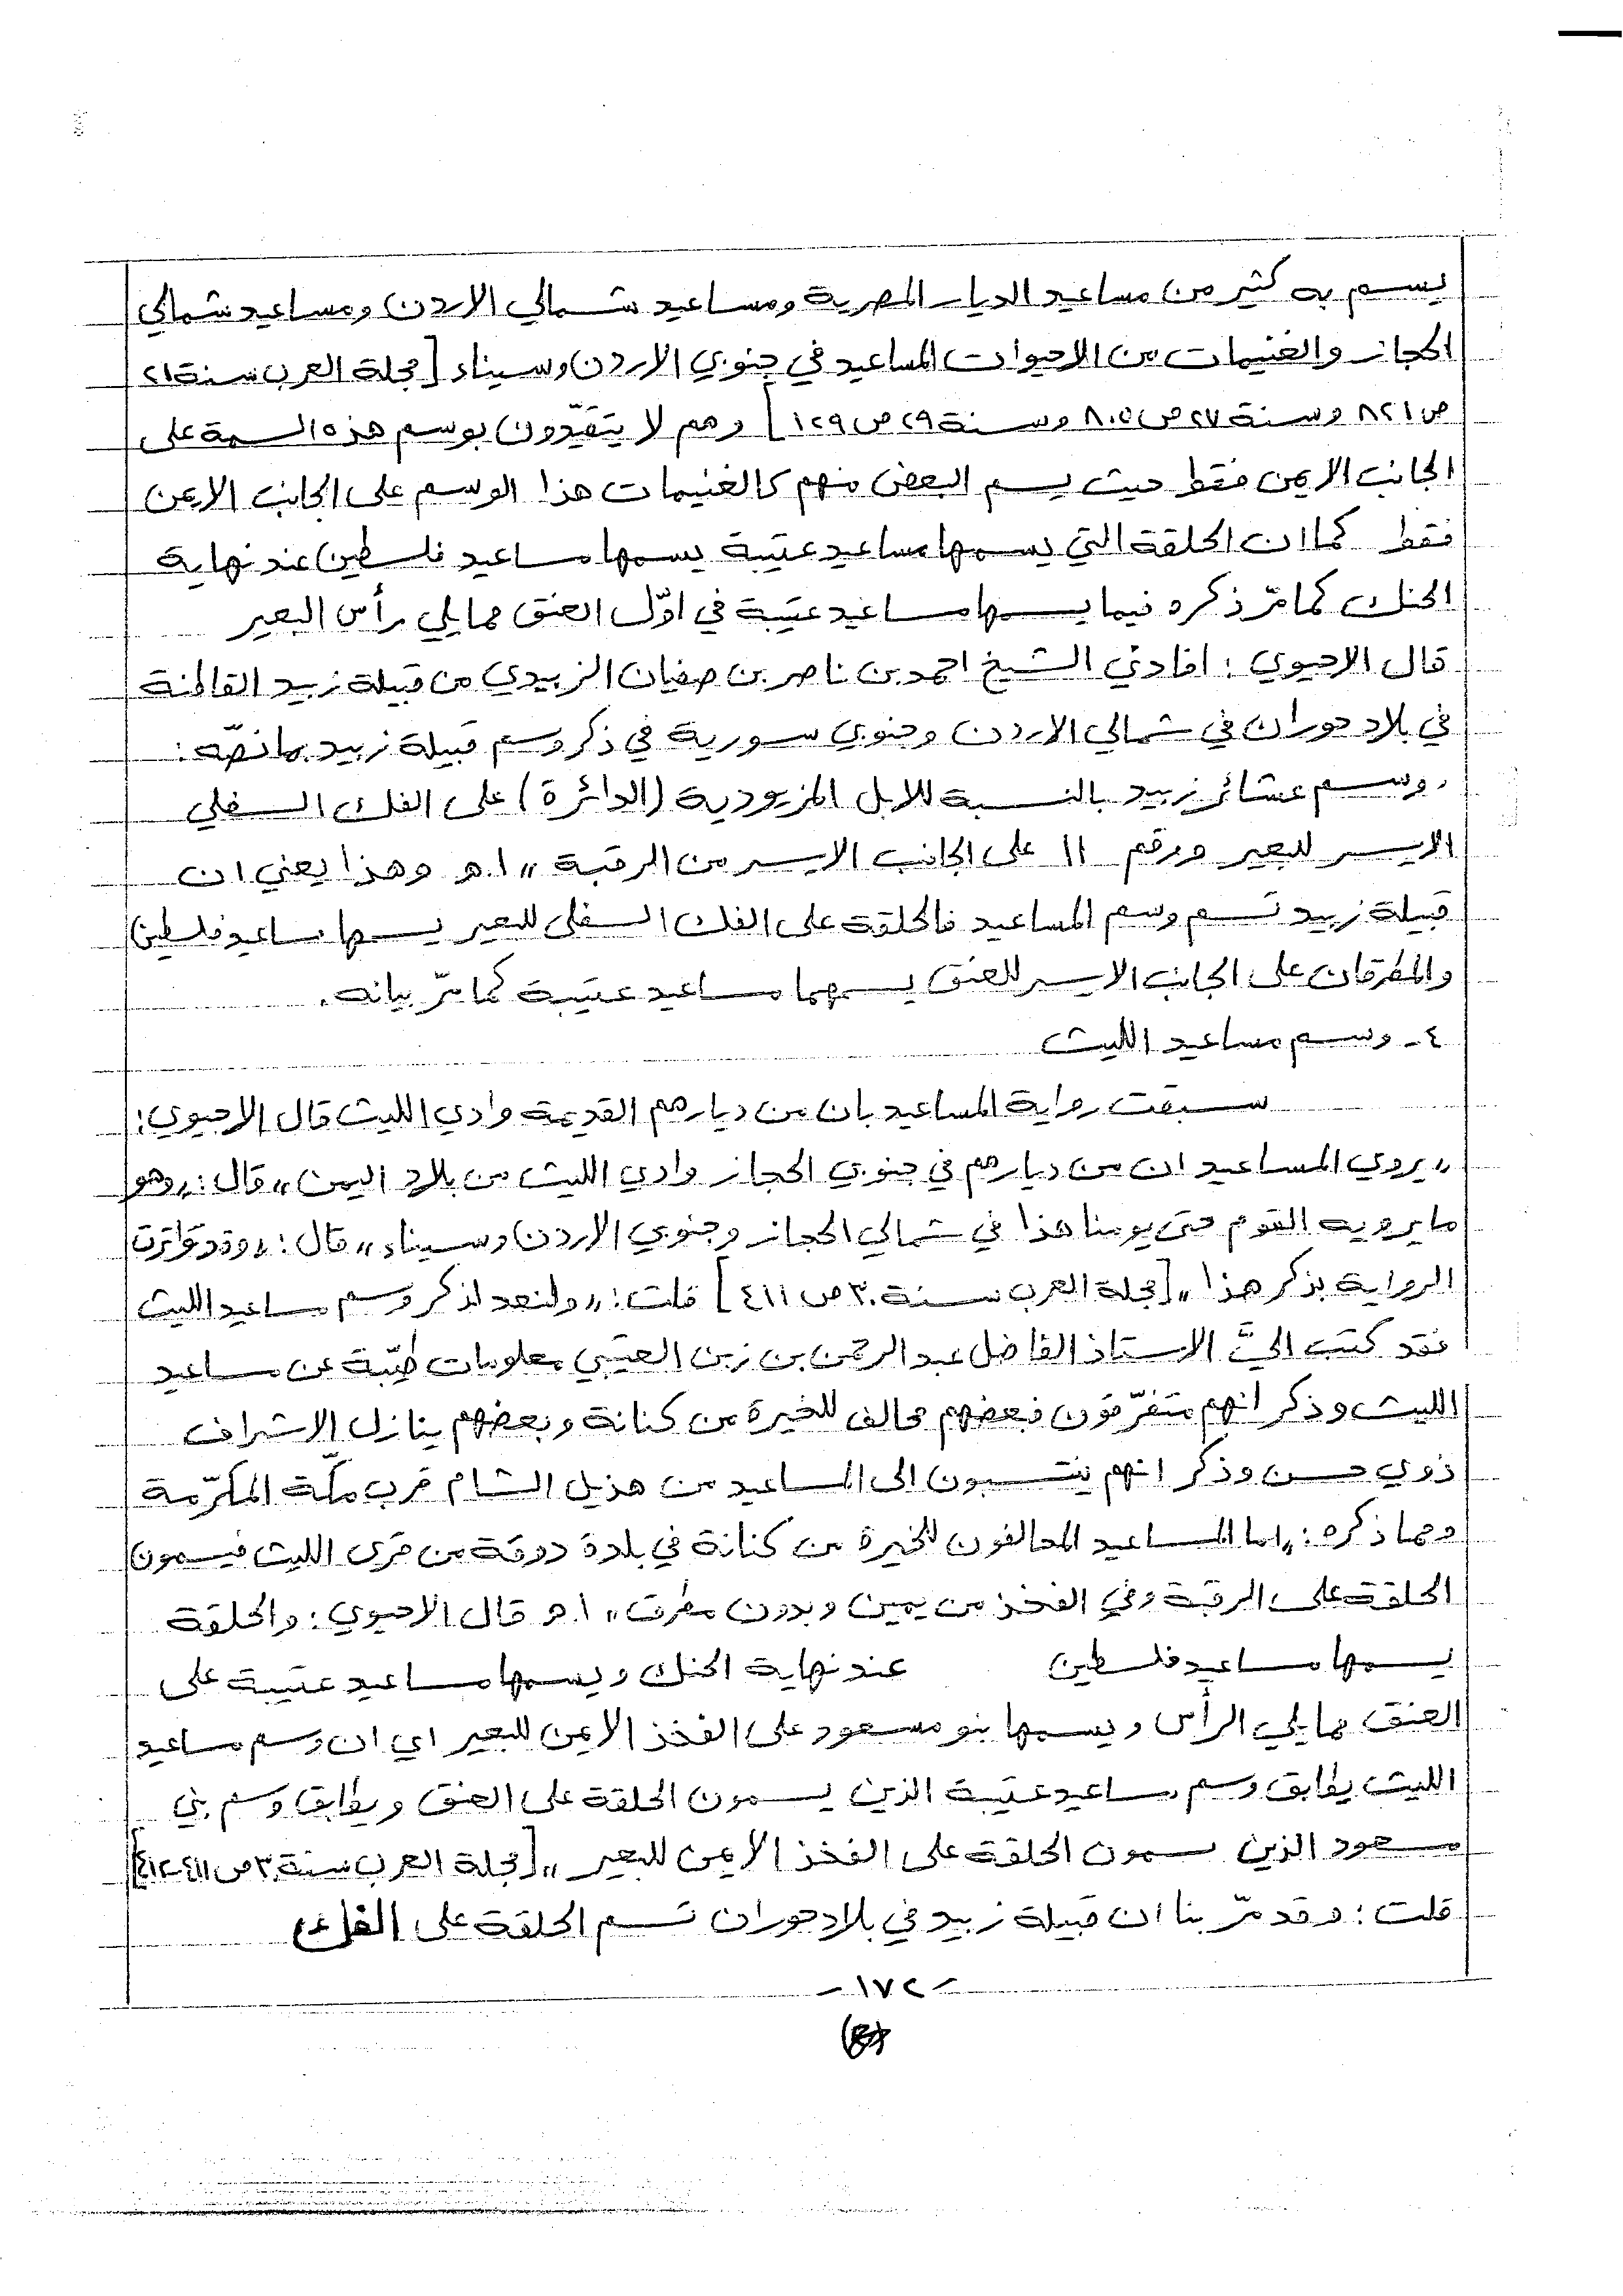 يسم به كثير من مساعيد الديار المصرية ومساعيد شمالي الاردن ومساعيد شمالي
الحجاز والغنيمات من الاحيوات المساعيد في جنوبي الاردن وسيناء [مجلة العرب سنة ٢١
ص ٨٢١ وسنة ٢٧ ص ٨٠٥ وسنة ٢٩ ص ١٢٩] وهم لا يتقيّدون بوسم هذه السمة على
الجانب الايمن فقط حيث يسم البعض منهم كالغنيمات هذا الوسم على الجانب الايمن
فقط كما ان الحلقة التي يسمها مساعيد عتيبة يسمها مساعيد فلسطين عند نهاية
الحنك كما مرّ ذكره فيما يسمها مساعيد عتيبة في اوّل العنق مما يلي رأس البعير
قال الاحيوي : افادني الشيخ احمد بن ناصر بن صفيان الزبيدي من قبيلة زبيد القاطنة
في بلاد حوران في شمالي الاردن وجنوبي سورية في ذكر وسم قبيلة زبيد بما نصّه :
"وسم عشائر زبيد بالنسبة للابل المزيودية (الدائرة) على الفك السفلي
الايسر للبعير ورقم ١١ على الجانب الايسر من الرقبة" ا.هـ وهذا يعني ان
قبيلة زبيد تسم وسم المساعيد فالحلقة على الفك السفلى للبعير يسمها مساعيد فلسطين
والمطرقان على الجانب الايسر للعنق يسمهما مساعيد عتيبة كما مرّ بيانه.
٤- وسم مساعيد الليث
سبقت رواية المساعيد بان من ديارهم القديمة وادي الليث قال الاحيوي :
"يروي المساعيد ان من ديارهم في جنوبي الحجاز وادي الليث من بلاد اليمن" قال : "وهو
ما يرويه القوم حتى يومنا هذا في شمالي الحجاز وجنوبي الاردن وسيناء" قال : "وقد تواترت
الرواية بذكر هذا" [مجلة العرب سنة ٣٠ ص ٤١١] قلت : "ولنعد لذكر وسم مساعيد الليث
فقد كتب اليَّ الاستاذ الفاضل عبد الرحمن بن زبن العتيبي معلومات طيّبة عن مساعيد
الليث وذكر انهم متفرّقون فبعضهم محالف للخيرة من كنانة وبعضهم ينازل الاشراف
ذوي حسن وذكر انهم ينتسبون الى المساعيد من هذيل الشام قرب مكّة المكرّمة
ومما ذكره : "اما المساعيد المحالفون للخيرة من كنانة في بلدة دوقة من قرى الليث فيسمون
الحلقة على الرقبة وفي الفخذ من يمين وبدون مطرق" ا.هـ قال الاحيوي : والحلقة
يسمها مساعيد فلسطين عند نهاية الحنك ويسمها مساعيد عتيبة على
العنق مما يلي الرأس ويسمها بنو مسعود على الفخذ الايمن للبعير اي ان وسم مساعيد
الليث يطابق وسم مساعيد عتيبة الذين يسمون الحلقة على العنق ويطابق وسم بني
مسعود الذين يسمون الحلقة على الفخذ الايمن للبعير" [مجلة العرب سنة ٣٠ ص ٤١١-٤١٢]
قلت : وقد مرّ بنا ان قبيلة زبيد في بلاد حوران تسم الحلقة على الفك
-١٧٢-